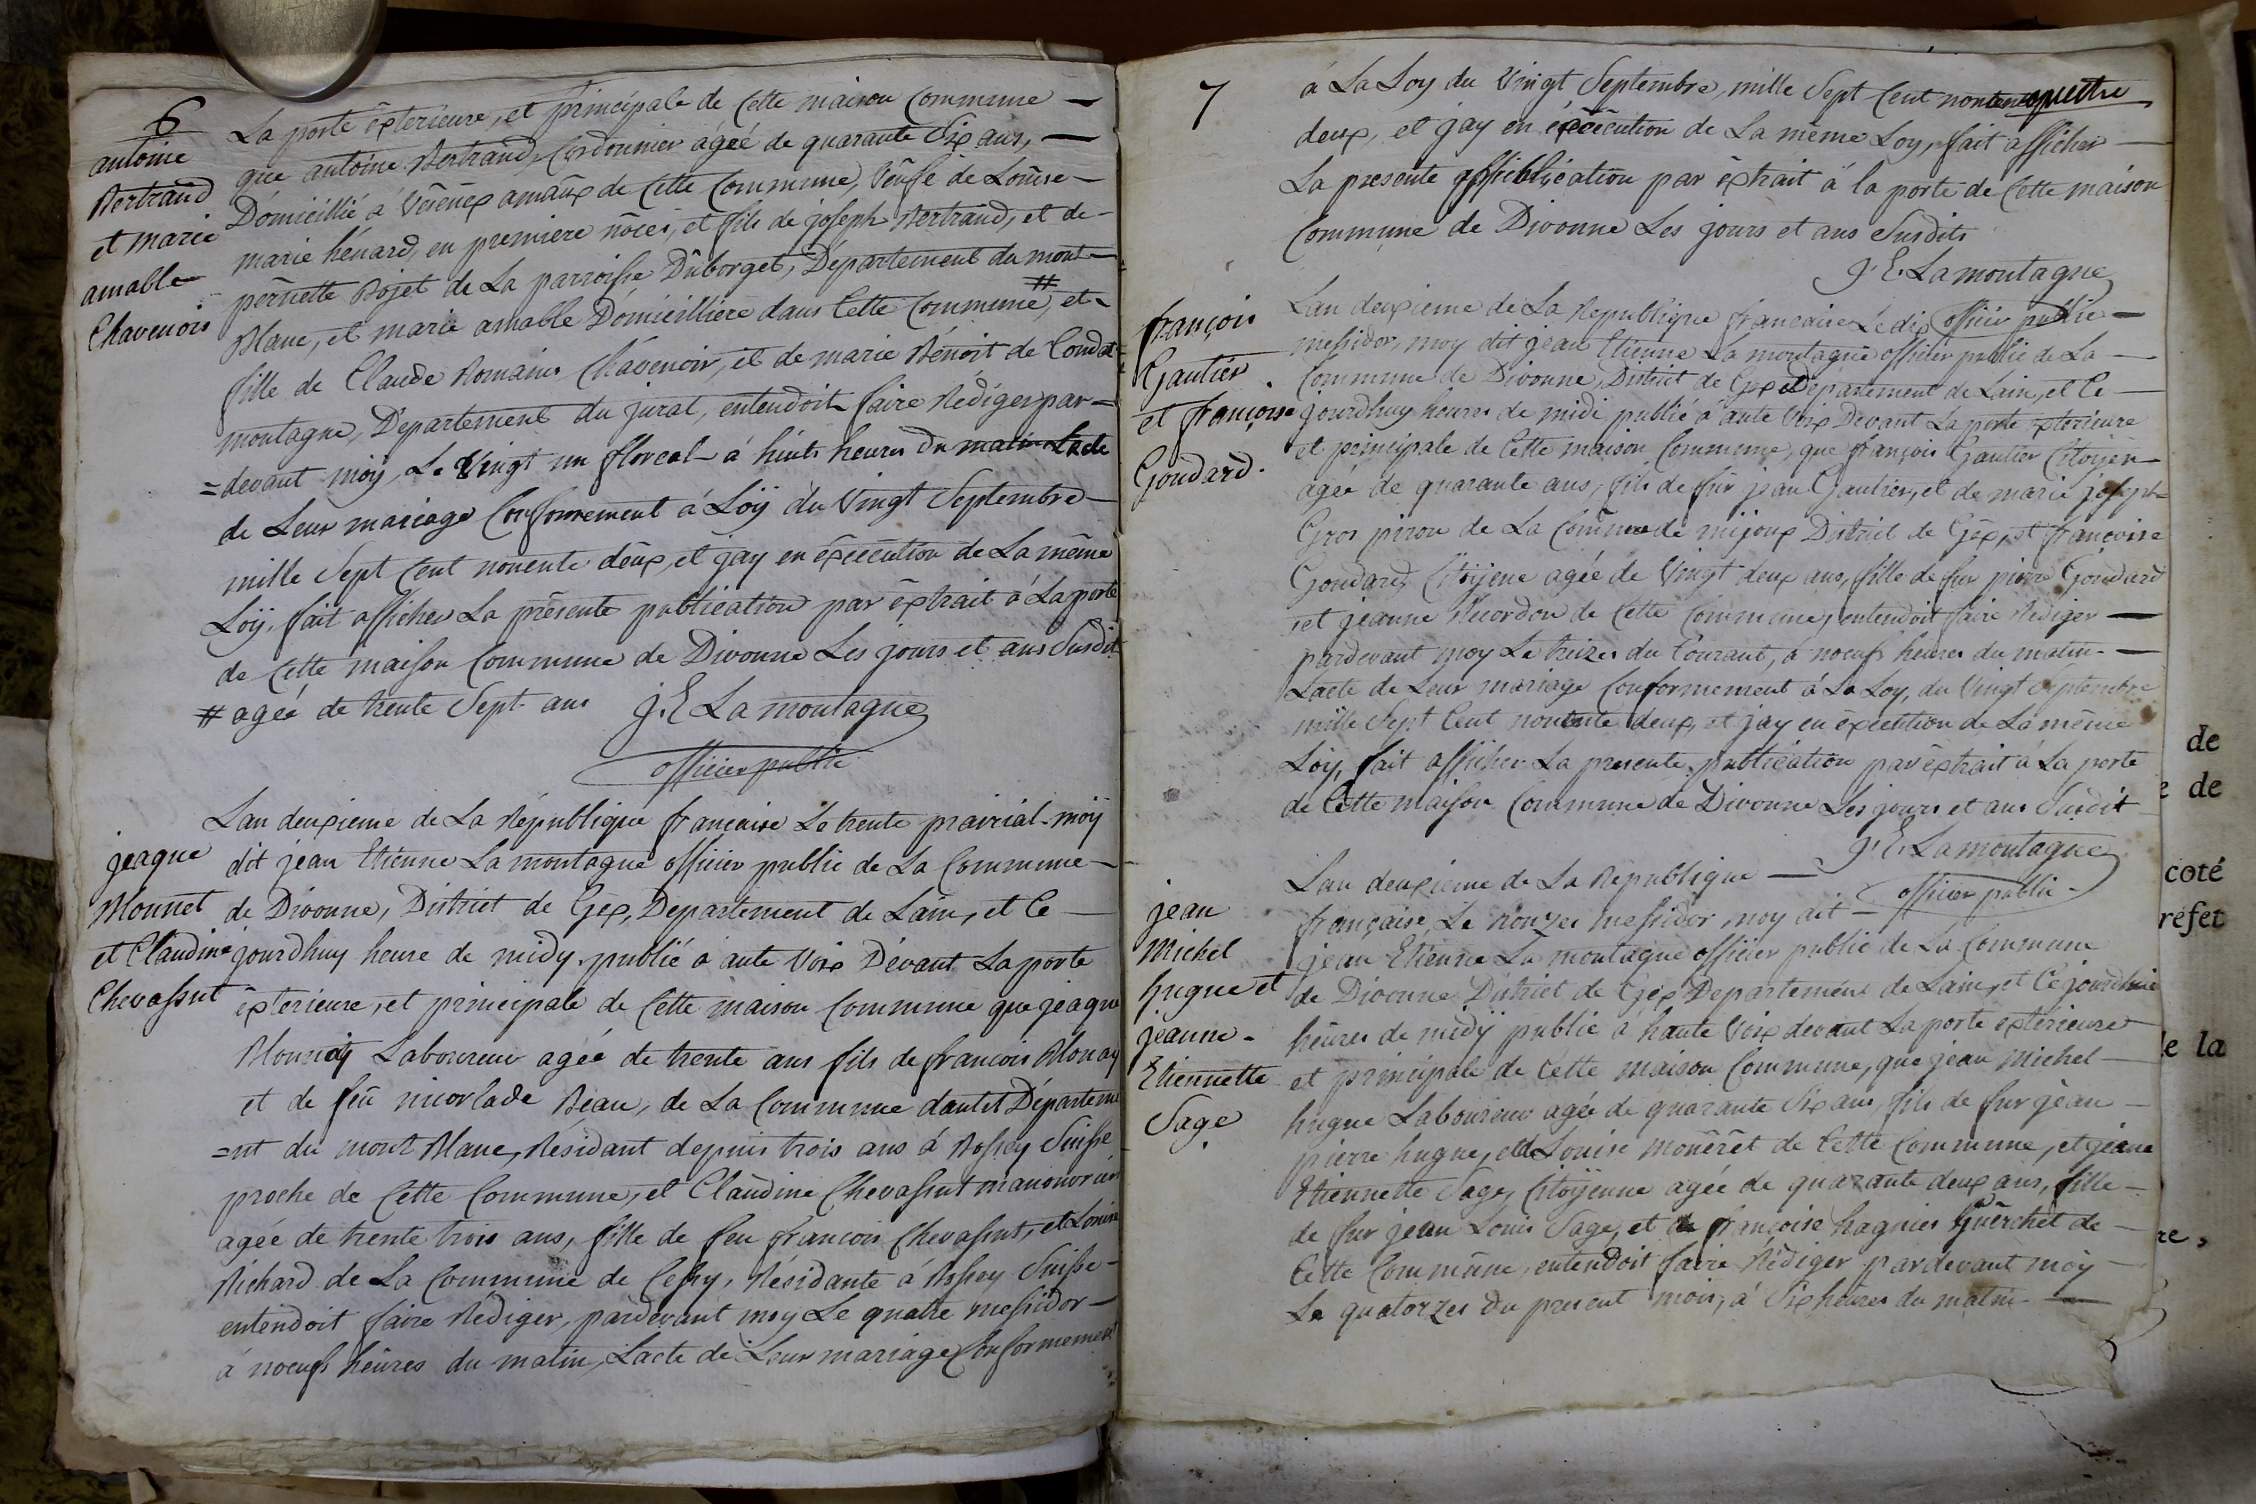 6
antoine
Bertrand
et marie
amable
Chavenois
La porte éxterieure, et principale de Cette maison Commune
que antoine Bertrand, Cordonnier agéé de quarante Six ans,
Domicillié á amaux de Cette Commune, Veufe de Louise
marie hénard, en premiere nôces, et fils de joseph Bertrand, et de
pernette Bojet de La parroisse Duborget, Département du mont
Blanc, et marie amable Domicillière dans Cette Commune #, et
fille de Claude Romains Chavenoir, et de marie Bénoit de Condat
montagne, Departement du jurat, entendoit faire Rédiger par
=devant moÿ, Le Vingt un floreal á huits heures du matin Lacte
de Leur mariage Conformement á Loÿ du Vingt Septembre
mille Sept Cent nonente deux, et jay en éxécution de La même
Loÿ, fait afficher La présente publication par éxtrait á La porte
de Cette maison Commune de Divonne Les jours et ans Susdit
# agéé de trente Sept ans J. E Lamontagne
officier public
jeaque
Monnet
et Claudine
Chevassut
Lan deuxieme de La République francaise Le trente prairial moÿ
dit jean Etienne La montagne officier public de La Commune
de Divonne, District de Gex, Departement de Lain, et Ce
jourdhuy heure de midy, publié á aute Voix Dévant La porte
éxterieure, et principale de Cette maison Commune que jeaque
Monnaÿ Laboureur agéé de trente ans fils de francois Monay
et de feü nicorlade Beau, de La Commune dautet Départeme
=nt du mont Blanc, Résidant depuis trois ans á Bossey Suisse
proche de Cette Commune, et Claudine Chevassut manouvrière
agéé de trente trois ans, fille de feu francois Chevassut, et Louise
Richard de La Commune de Cessy, Résidante á Bossey Suisse
entendoit faire Rédiger, pardevant moy Le quatre messidor
á noeufs heüres du matin, Lacte de Leur mariage Conformement
7
á La Loy du Vingt Septembre, mille Sept Cent nonten quettre
deux, et jay en éxécution de La même Loy, fait afficher
La presente publication par éxtrait á la porte de Cette maison
Commune de Divonne Les jours et ans Susdits
J. E. Lamontagne
officier public
françois
Gautier
et françoise
Goudard.
Lan deuxieme de La Republique francaise Le dix
messidor, moy dit jean Etienne La montagne officier public de La
Commune de Divonne, District de Gex et Département de Lain, et Ce
jourdhuy heures de midi publié á aute Voix Devant La porte éxterieure
et principale de Cette maison Commune, que françois Gautier Citoÿen
agéé de quarante ans, fils de fur jean Gautier, et de marie joseph
Gros piron de La Commune de mijoux District de Gex, et françoise
Goudard, Citoÿene agéé de Vingt deux ans, fille de fur pierre Goudard
et jeanne Recordon de Cette Commune, entendoit faire Rediger
pardevant moy Le treizes du Courant, á noeufs heures du matin
Lacte de Leur mariage Conformement á La Loy, du Vingt Septembre
mille Sept Cent nontente deux, et jay en éxecution de La même
Loÿ, fait afficher La presente publication par éxtrait á La porte
de Cette maison Commune de Divonne Les jours et ans Susdit
J. E. Lamontagne
officier public
jean
Michel
hugue et
jeanne
Etiennette
Sage
Lan deuxieme de La Republique
française, Le nonzes messidor, moy dit
jean Etienne La montagne officier public de La Commune
de Divonne District de Gex Departement de Lain, et Ce jourdhuie
heüres de midÿ publié á haute Voix devant La porte éxterieure
et principale de Cette maison Commune, que jean Michel
hugue Laboureur agéé de quarante Six ans, fils de fur jean
pierre hugue, et de Louise Monêrêt de Cette Commune, et jeane
Etiennette Sage, Citoÿenne agéé de quarante deux ans, fille
de fur jean Louis Sage, et de françoise hagnier Guêrchet de
Cette Commune, entendoit faire Rédiger pardevant moÿ
Le quatorzes du present mois, á Six heüres du matin
de
de
coté
réfet
le la
re,